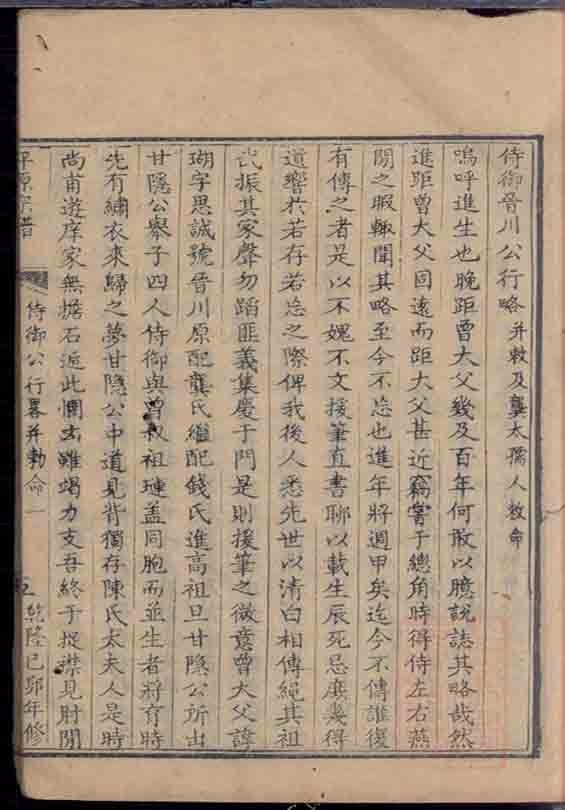 侍御晉川公行略并敕及龔太孺人敕命
嗚呼進生也晚距曾大父幾及百年何敢以臆說誌其略哉然
進距曾大父固遠而距大父甚近竊嘗于總角時得侍左右燕
閒之暇輒聞其略至今不忘也進年將週甲矣迄今不傳誰復
有傳之者是以不媿不文援筆直書聊以載生辰死忌庶幾得
道響於若存若忘之際俾我後人悉先世以清白相傳繩其祖
武振其家聲勿蹈匪義集慶于門是則援筆之微意曾大父諱
瑚字思誠號晉川原配龔氏繼配錢氏進高祖旦甘隱公所出
甘隱公舉子四人侍御與曾叔祖璉盖同胞而並生者將育時
先有繡衣來歸之夢甘隱公中道見背獨存陳氏太夫人是時
尚甫遊庠家無擔石逅此憫玄雖竭力支吾終于捉襟見肘閒
平原宗譜 侍御公行畧并勅命 一 五 乾隆己卯年修